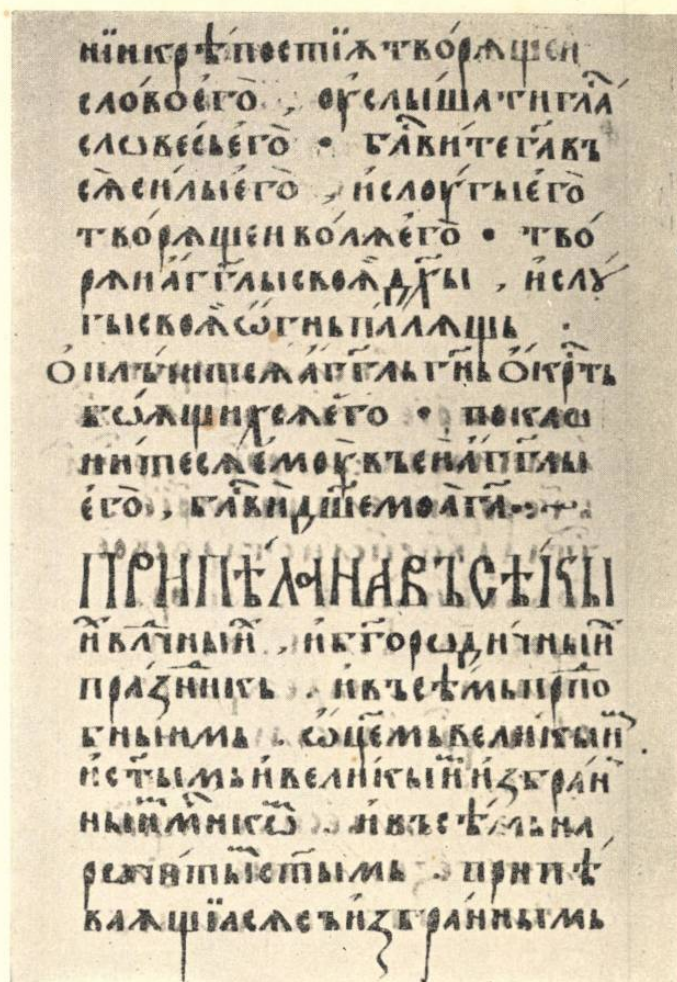 нїи крѣпостїѫ творѧщен
слово его̀ , ѹслы́шати гла̑
словесь его̀ • бл҃ви́те г҃а в꙽
сѧ̑ си́лы его̀ , и҆ слоу́гы его̀
творѧ́щен во́лѫ его̀ • тво́
рѧи а҆́гг҃лы своѫ̀ дх҃ы , и҆ слꙋ́
гы своѫ̀ ѡ҆́гнь палѧ́щь •
ѻ҆пль́чи́тсѧ а҆́гг҃ль г҃нь ѻ҆́кр̑ть
боѧ́щихсѧ его̀ • покло
ни́тесѧ емоу̀ въсѝ а҆́гг҃лы
его̀ , бл҃ви дш҃е моа̀ г҃а •
ПРИПѢЛА НА ВЪСѢКЫ
и҆ влⷣчный , и҆ бг҃оро́дичный
пра́зⷣникь . и҆ въсѣ́мь прпⷣо
бныимь . ѡ҆ц҃емь вели́кый
и҆ ст҃ымь и҆ вели́кый и҆збра́н
ныи м҃чнико̑ . и҆ въсѣ́мь на
рочи́ты ст҃ымь . припѣ
ваѧщїасѧ съ и҆збра́ннымь